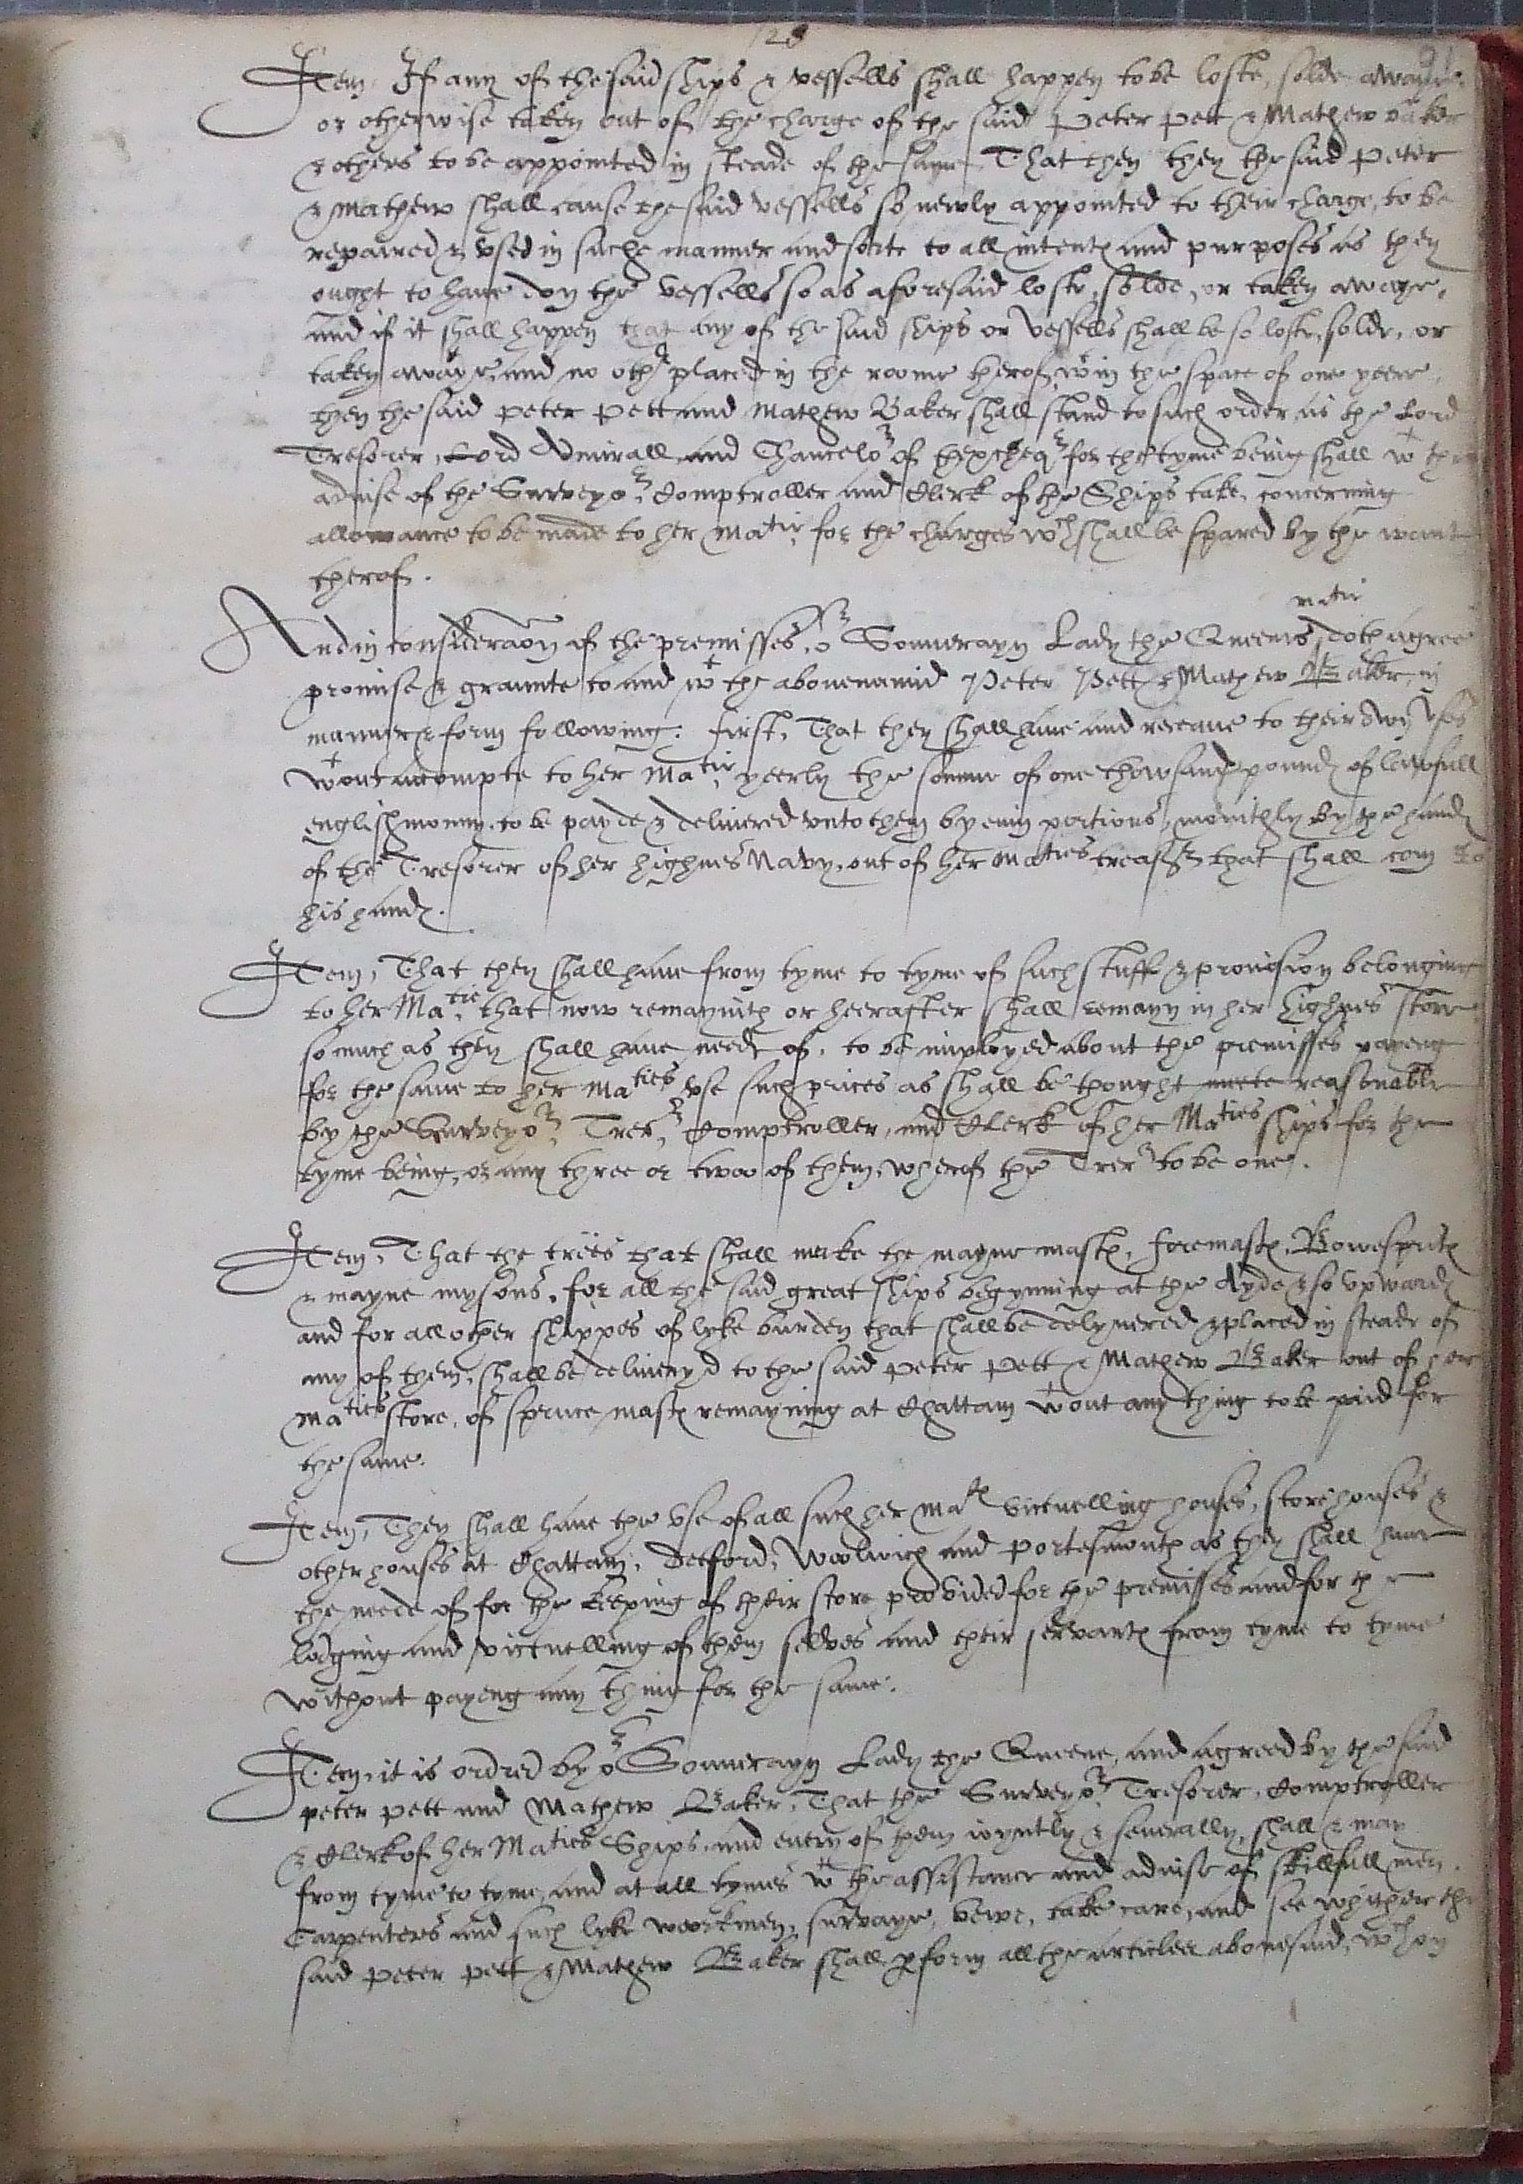 28
Item If any of the said ships & vessells shall happen to be loste, solde awaye,
or otherwise taken out of the charge of the said Peter Pett & Mathew Baker
& others to be appointed in steade of the same. That then they the said Peter
& Mathew shall cause the said vessells so newly appointed to their charge, to be
repaired & used in suche manner and sorte to all intentes and purposes as they
ought to have don the vessells so as aforesaid loste, solde, or taken awaye,
and if it shall happen that any of the said ships or vessells shall be so loste, solde, or
taken awaye, and no other placed in the roome therof wtin the space of one yeere,
then the said Peter Pett and Mathew Baker shall stand to such order as the Lord
Tresorer, Lord Admirall and Chancelor of thexcheqr for the tyme being shall wt the
advise of the Surveyor, Comptroller and Clerk of the Ships take, concerning
allowance to be made to her Matie, for the charges wch shall be spared by the want
therof.
matie
And in consideracon of the premisses, or Soverayn Lady the Queens doth agree
promise & graunte to and wt the abovenamid Peter Pett & Mathew Baker, in
manner & form following. First, That they shall have and receave to their own uses
wtout accompte to her Matie, yeerly the somme of one thowsand poundes of lawfull
english monny, to be payde & delivered unto them by evin portions, monthly by the handes
of the Tresorer of her highnes Navy, out of her Maties treasr that shall com to
his handes.
Item, That they shall have from tyme to tyme of such stuff & provision belonging
to her Matie, that now remayneth or heerafter shall remayn in her highnes store
so much as they shall have neede of, to be imployed about the premisses payeng
for the same to her Maties use such prices as shall be thought meete reasonable
by the Surveyor, Tresr, Comptroller, and Clerk of her Maties ships for the
tyme being, or any three or twoo of them, wherof the Trer to be one.
Item, That the trees that shall make the mayne mastes, foremastes, Bowesprites
& mayne mysons, for all the said great ships begynning at the Ayde & so upwardes
and for all other shippes of lyke burden that shall be delyvered & placed in steade of
any of them, shall be deliveryd to the said Peter Pett & Mathew Baker out of her
Maties store, of spruce mastes remayning at Chattam wtout any thing to be paid for
the same.
Item, They shall have the use of all such her Mates victuelling houses, storehouses &
other houses at Chattam, Detford, Woolwich and Portesmouth as they shall have
the neede of for the keeping of their store provided for the premisses and for the
lodging and victuelling of them selves and their servantes from tyme to tyme
without payeng any thing for the same.
Item, it is ordred by or Soverayn Lady the Queene, and agreed by the said
Peter Pett and Mathew Baker, That the Surveyor, Tresorer, Comptroller
& Clerk of her Maties Ships, and every of them joyntly & severally, shall & may
from tyme to tyme, and at all tymes wt the assistance and advise of skillfull men,
Carpenters and such lyke workmen, survaye, vewe, take care, and see whither the
said Peter Pett & Mathew Baker shall pform all the articles abovesaid, wch on